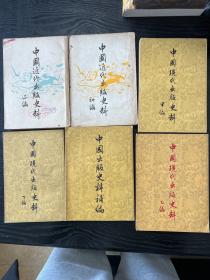 中國近代出版史料
二編
中國近代出版史料
初編
中國現代出版史料
甲編
中國現代出版史料
丁編
中國出版史料補編
中國現代出版史料
乙編